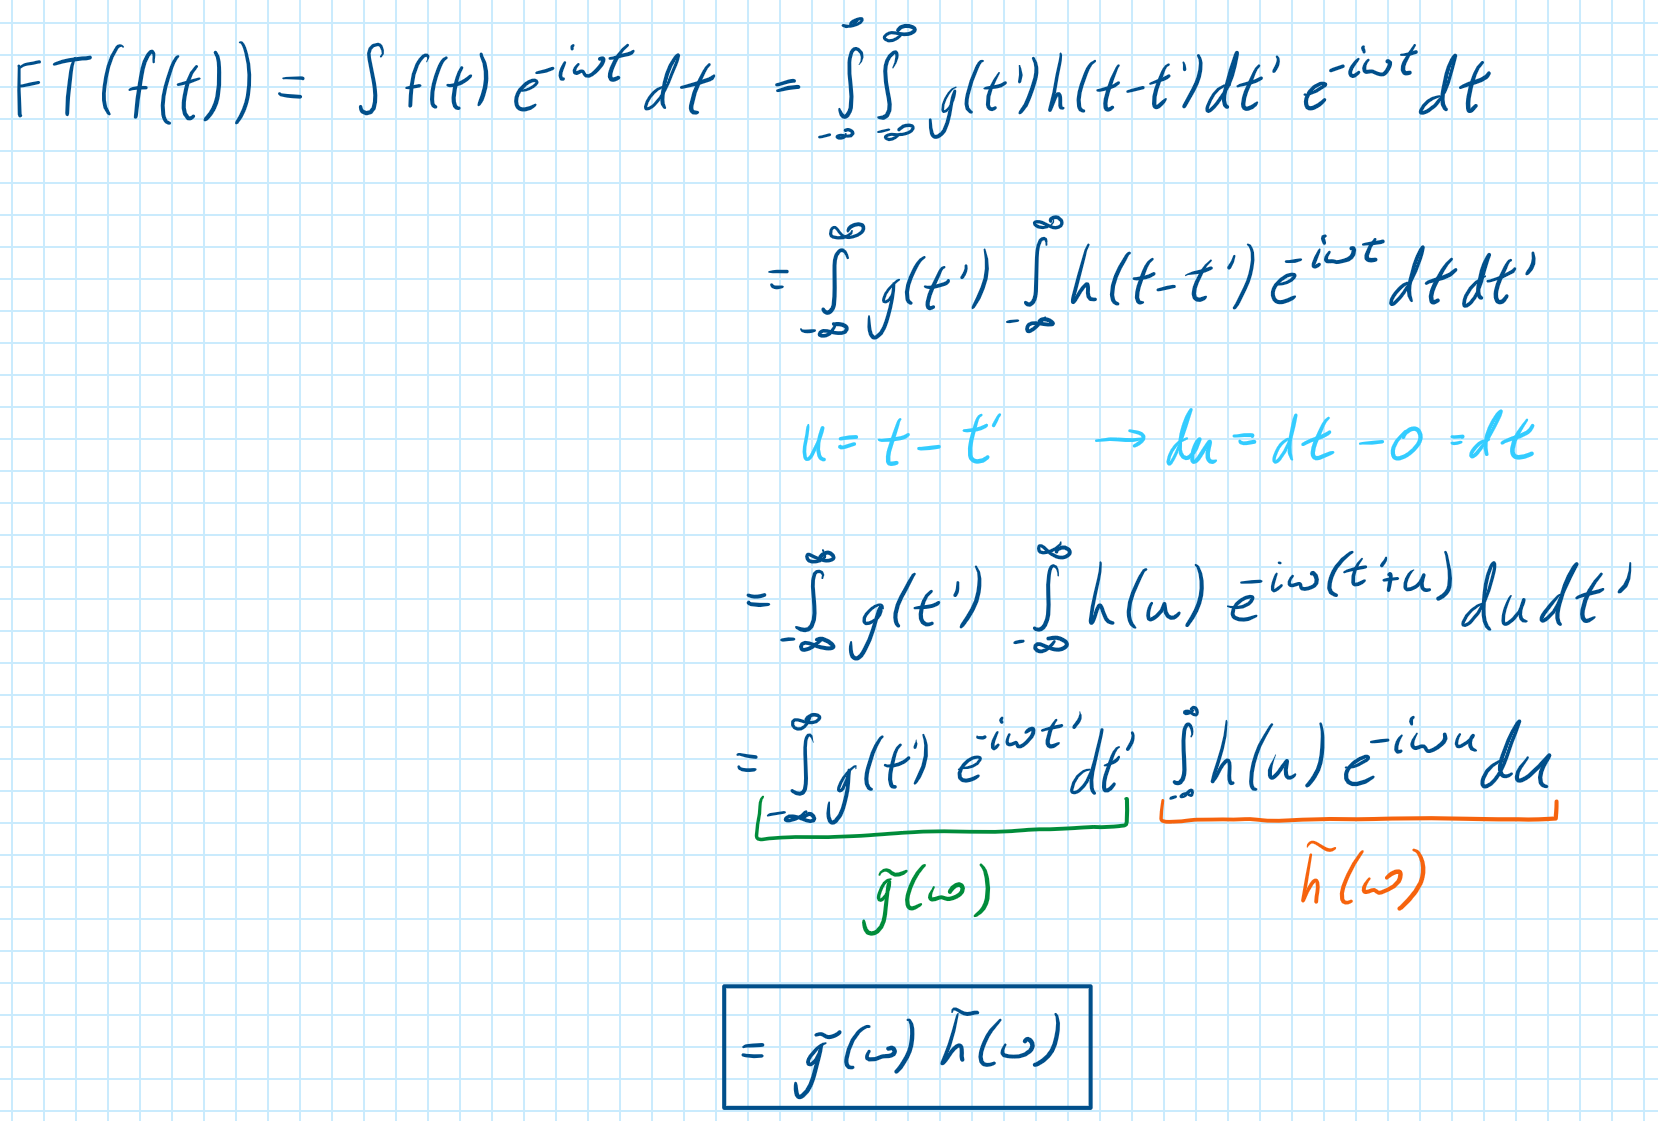 FT(f(t)) = ∫ f(t) e^{-iωt} dt = ∫_{-∞}^{∞} ∫_{-∞}^{∞} g(t')h(t-t')dt' e^{-iωt} dt
= ∫_{-∞}^{∞} g(t') ∫_{-∞}^{∞} h(t-t') e^{-iωt} dt dt'
u = t - t' → du = dt - 0 = dt
= ∫_{-∞}^{∞} g(t') ∫_{-∞}^{∞} h(u) e^{-iω(t'+u)} du dt'
= ∫_{-∞}^{∞} g(t') e^{-iωt'} dt' ∫_{-∞}^{∞} h(u) e^{-iωu} du
g̃(ω) h̃(ω)
= g̃(ω) h̃(ω)